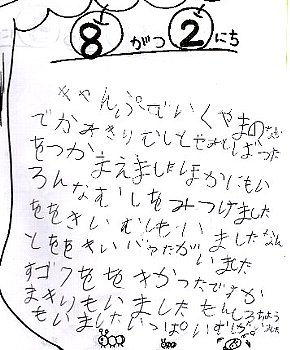 8がつ2にち
きゃんぷでいくやまのなか
でかみきりむしとせみとばった
をつかまえましたほかにもい
ろんなむしをみつけました
ををきいむしもいましたなん
とををきいバッタがいました
すゴクををきかったですか
まきりもいましたもんしろちょう
もいましたいっぱいむしがいました